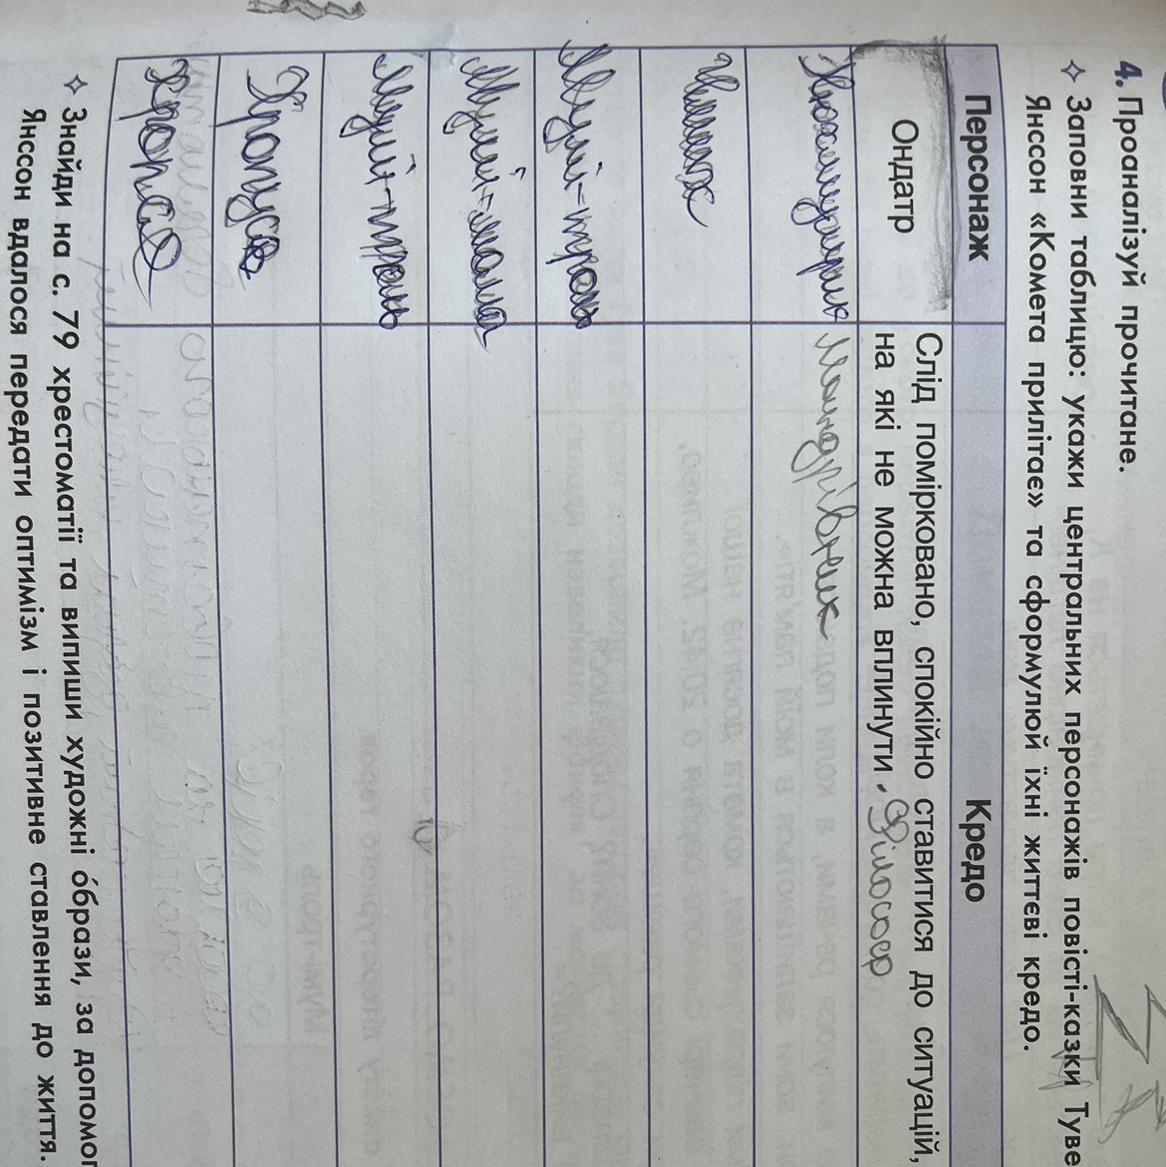 4. Проаналізуй прочитане.
✧ Заповни таблицю: укажи центральних персонажів повісті-казки Туве
Янссон «Комета прилітає» та сформулюй їхні життєві кредо.
Персонаж Кредо
Ондатр Слід помірковано, спокійно ставитися до ситуацій,
на які не можна вплинути. Філософ
Мандрівник
Чмих
Мумі-троль
Мумі-мама
Мумі-троль
Хропуся
Хропсь
✧ Знайди на с. 79 хрестоматії та випиши художні о́брази, за допомог
Янссон вдалося передати оптимізм і позитивне ставлення до життя.